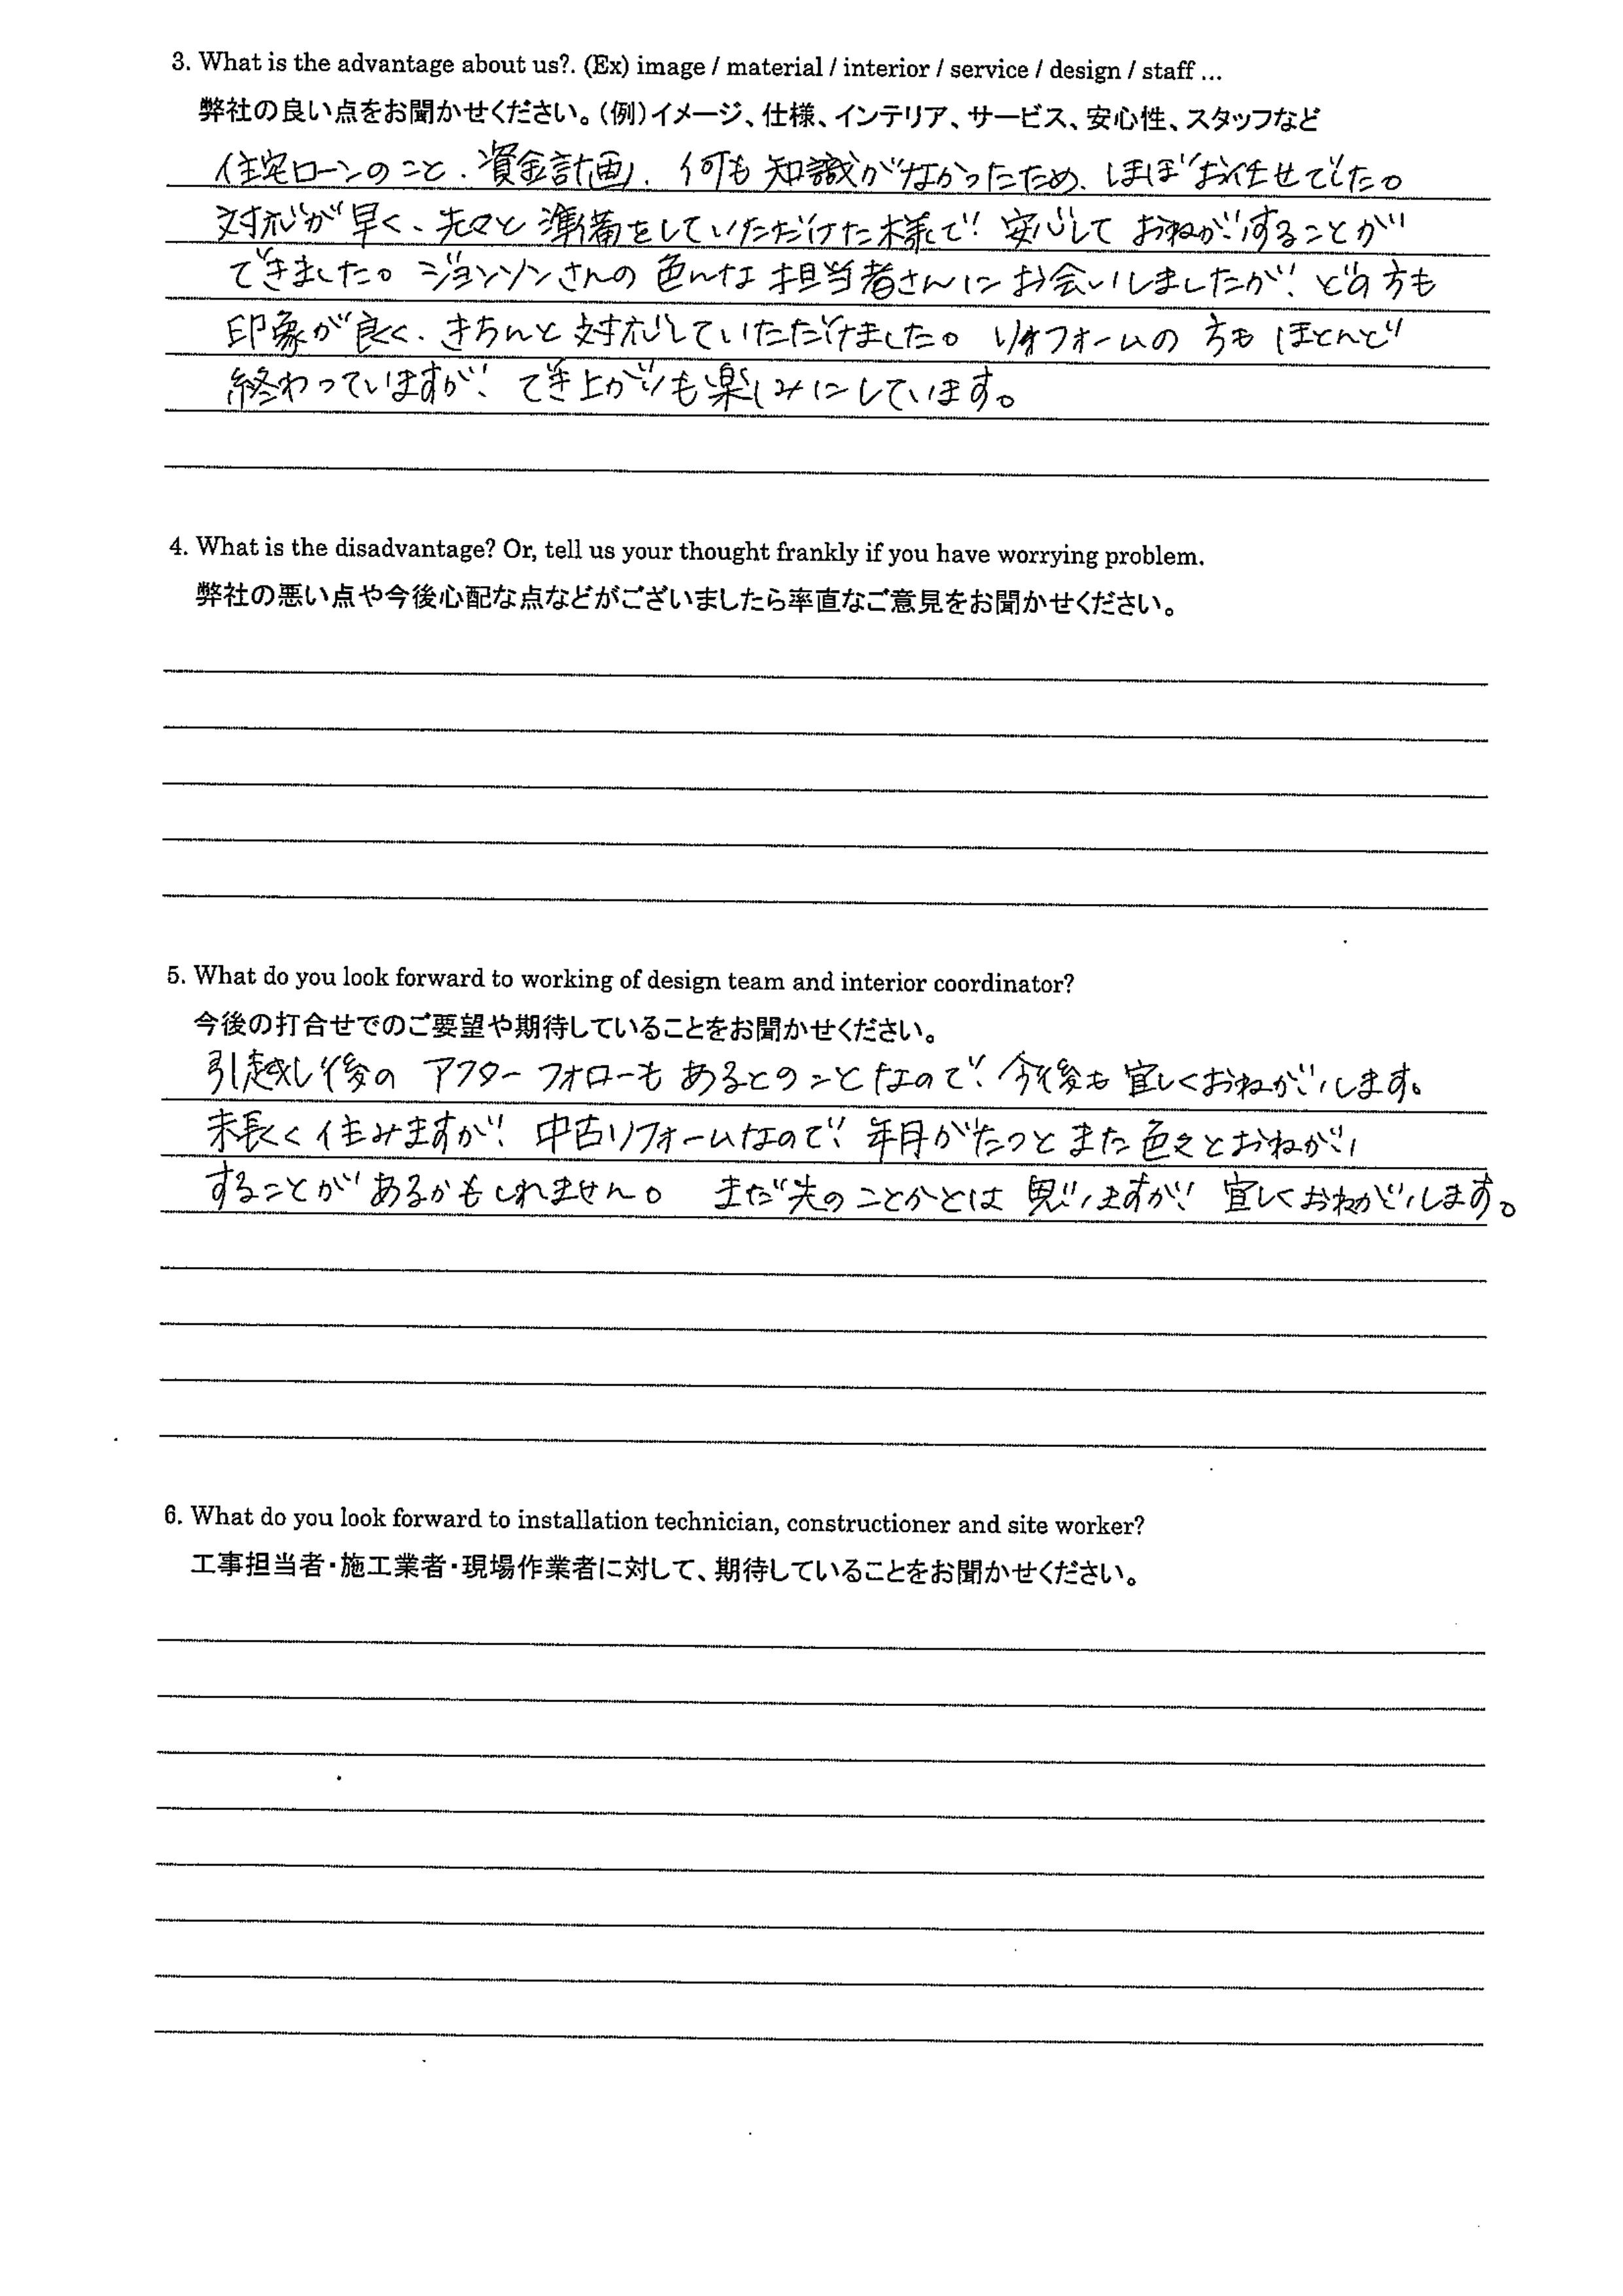 3. What is the advantage about us?. (Ex) image / material / interior / service / design / staff ...
弊社の良い点をお聞かせください。(例)イメージ、仕様、インテリア、サービス、安心性、スタッフなど
住宅ローンのこと、資金計画、何も知識がなかったため、ほぼお任せでした。
対応が早く、先々と準備をしていただけた様で、安心しておねがいすることが
できました。ジョンソンさんの色んな担当者さんにお会いしましたが、どの方も
印象が良く、きちんと対応していただけました。リフォームの方もほとんど
終わっていますが、でき上がりも楽しみにしています。
4. What is the disadvantage? Or, tell us your thought frankly if you have worrying problem.
弊社の悪い点や今後心配な点などがございましたら率直なご意見をお聞かせください。
5. What do you look forward to working of design team and interior coordinator?
今後の打合せでのご要望や期待していることをお聞かせください。
引越し後のアフターフォローもあるとのことなので、今後も宜しくおねがいします。
末長く住みますが、中古リフォームなので、年月がたつとまた色々とおねがい
することがあるかもしれません。 まだ先のことかとは思いますが、宜しくおねがいします。
6. What do you look forward to installation technician, constructioner and site worker?
工事担当者・施工業者・現場作業者に対して、期待していることをお聞かせください。